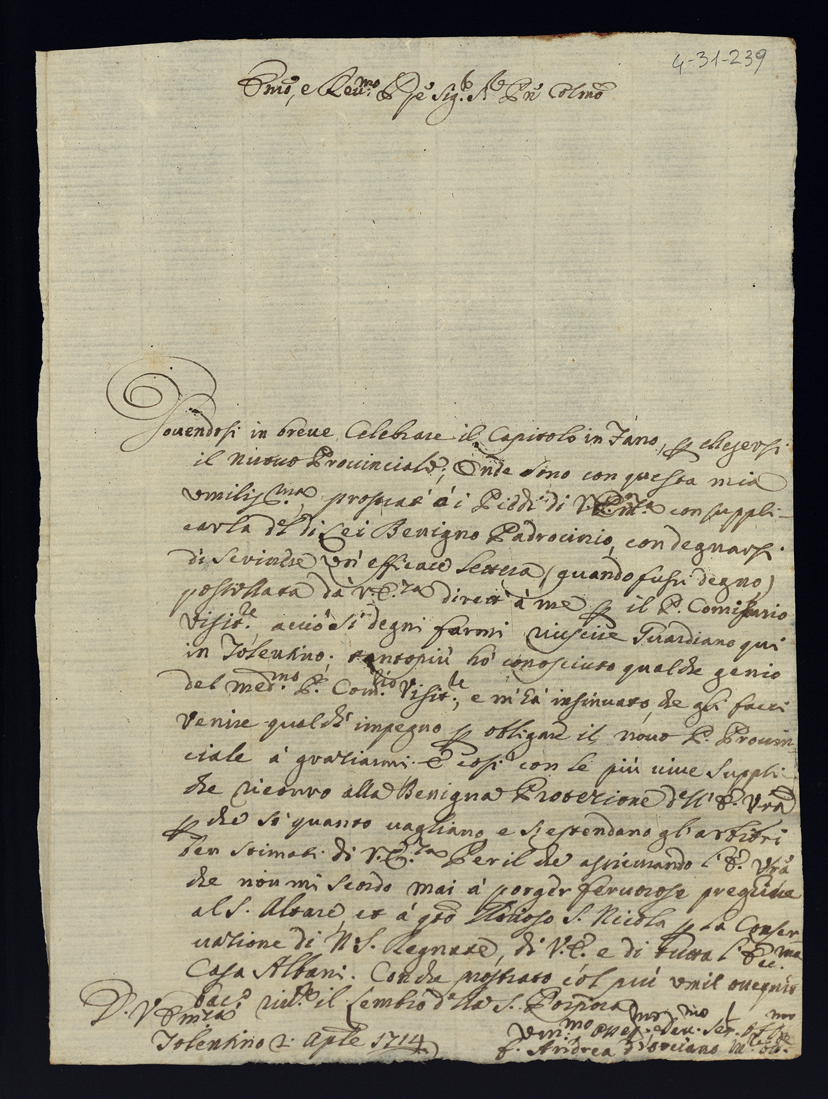 4-31-239
Emo, e Reu.mo P.pe Sig.r Sig.r P.rn Colmo
Douendosi in breue Celebrare il Capitolo in Fano, p elegersi
il nuouo Prouinciale; Onde sono con questa mia
vmiliss.ma prostrat' à i Piedi di V.Em.za con suppli-
carla del di Lei Benigno Padrocinio, con degnarsi
di scriuere un' efficace lettera (quando fussi degno)
postillata dà V.E.za dirett' à me p il P. Comissario
Visit.re acciò si degni farmi riuscire Guardiano qui
in Tolentino; tantopiù hò conosciuto qualche genio
del med.mo P. Com.rio Visit.re, e m'hà insinuato, che gli facci
venire qualch' impegno p obligare il nouo P. Prouin-
ciale à graziarmi. E così con le più viue suppli-
che ricorro alla Benigna Protezione dell' E. Vrã
p che sò quanto vagliano e si estendano gl' arbitri
ben stimati di V.E.za Per il che assicurando l'E. Vrã
che non mi scordo mai à porger feruorose preghiere
al S. Altare et à q̃to Glorioso S. Nicola p la Conser
uazione di N. S. Regnante, di V.E. e di tutta l'Ecc.ma
Casa Albani. Con che prostrato col più vmil ossequio
bacio il Lembo della S. Porpora
D. V. Em.za
Tolentino 2. Aple 1714
Vmi.mo deu.mo Ser.
f. Andrea d'Orciano